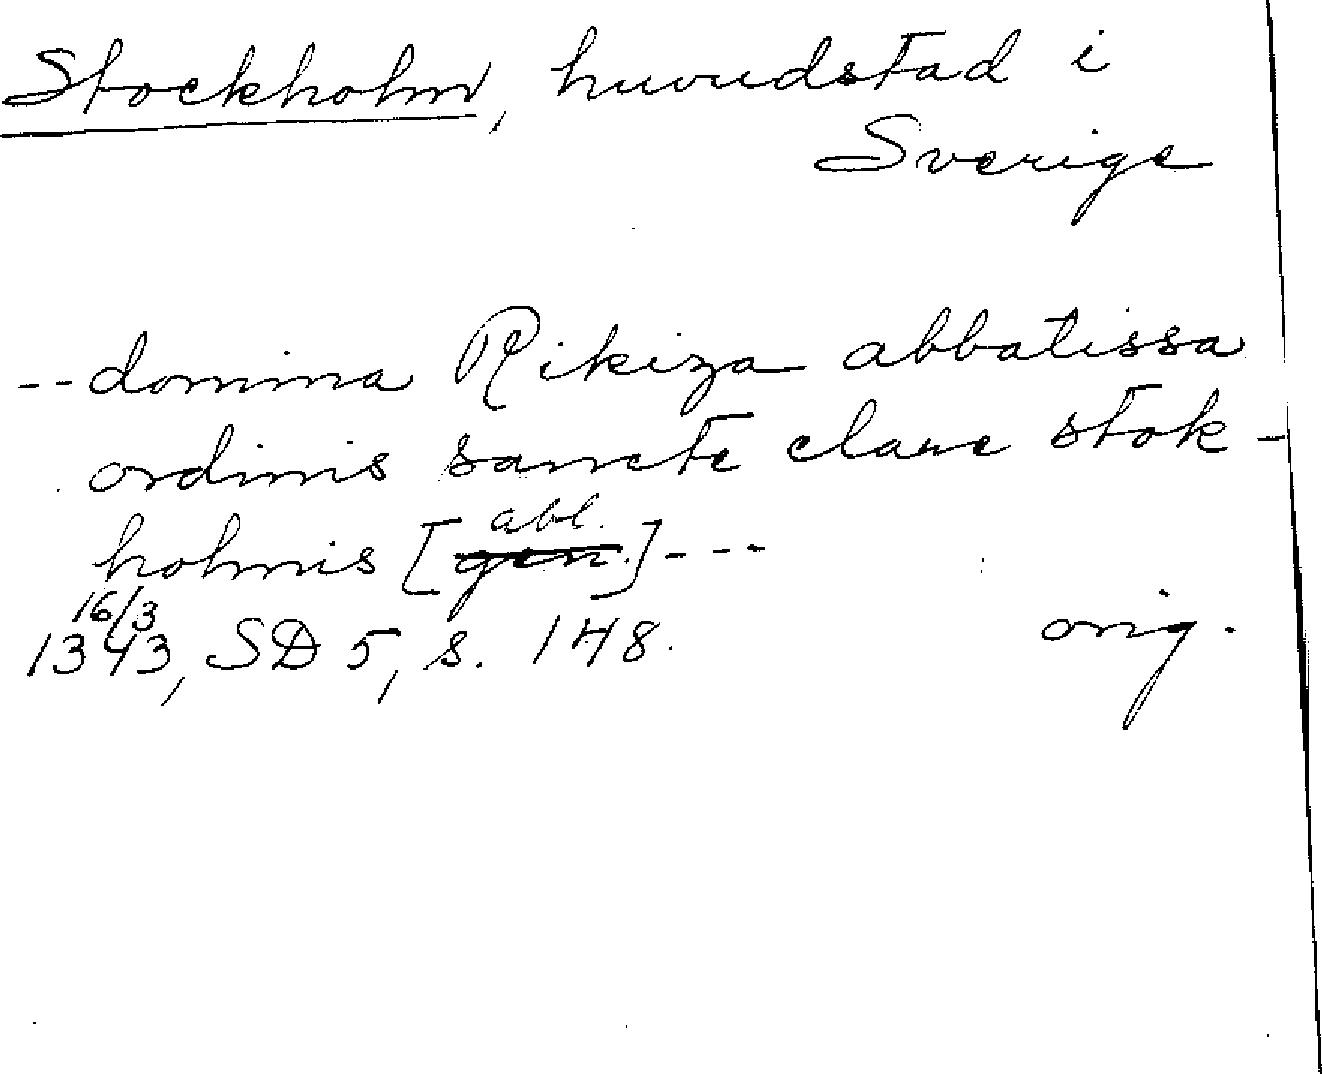 Stockholm, huvudstad i
Sverige
--domina Rikiza abbatissa
ordinis sancte clare stok-
holmis [gen. abl.]---
16/3
1343, SD 5, s. 148. orig.